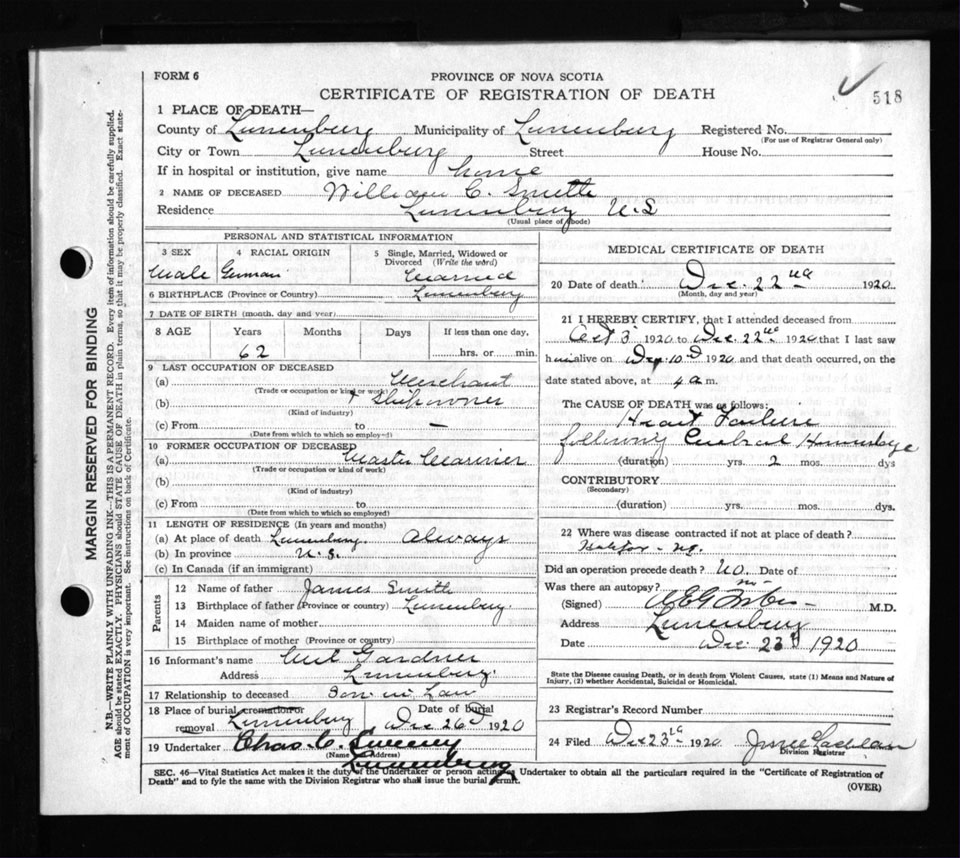 FORM 6
PROVINCE OF NOVA SCOTIA
CERTIFICATE OF REGISTRATION OF DEATH
518
1 PLACE OF DEATH—
County of Lunenburg Municipality of Lunenburg Registered No.
(For use of Registrar General only)
City or Town Lunenburg Street House No.
If in hospital or institution, give name home
2 NAME OF DECEASED William C. Smith
Residence Lunenburg N.S
(Usual place of abode)
PERSONAL AND STATISTICAL INFORMATION
3 SEX 4 RACIAL ORIGIN 5 Single, Married, Widowed or Divorced (Write the word)
Male German Married
6 BIRTHPLACE (Province or Country) Lunenburg
7 DATE OF BIRTH (month, day and year)
8 AGE Years Months Days If less than one day,
62 hrs. or min.
9 LAST OCCUPATION OF DECEASED
(a) Merchant
(Trade or occupation or kind of work)
(b) + Shipowner
(Kind of industry)
(c) From to —
(Date from which to which so employed)
10 FORMER OCCUPATION OF DECEASED
(a) Master Mariner
(Trade or occupation or kind of work)
(b)
(Kind of industry)
(c) From to
(Date from which to which so employed)
11 LENGTH OF RESIDENCE (In years and months)
(a) At place of death Lunenburg. Always
(b) In province N.S.
(c) In Canada (if an immigrant)
Parents
12 Name of father James Smith
13 Birthplace of father (Province or country) Lunenburg.
14 Maiden name of mother
15 Birthplace of mother (Province or country)
16 Informant's name Gardner
Address Lunenburg.
17 Relationship to deceased Son in Law
18 Place of burial cremation or removal Lunenburg Date of burial Dec 26 1920
19 Undertaker Chas. C.
(Name and Address)
Lunenburg
MEDICAL CERTIFICATE OF DEATH
20 Date of death Dec. 22nd 1920
(Month, day and year)
21 I HEREBY CERTIFY, that I attended deceased from
Oct 3 1920 to Dec. 22nd 1920 that I last saw
him alive on Dec. 10 1920 and that death occurred, on the
date stated above, at 4 a m.
The CAUSE OF DEATH was as follows:
Heart Failure
following Cerebral Hemorrhage
(duration) yrs. 2 mos. dys
CONTRIBUTORY
(Secondary)
(duration) yrs. mos. dys.
22 Where was disease contracted if not at place of death?
Halifax - NS.
Did an operation precede death? no. Date of
Was there an autopsy? no
(Signed) M.D.
Address Lunenburg
Date Dec 23 1920
State the Disease causing Death, or in death from Violent Causes, state (1) Means and Nature of
Injury, (2) whether Accidental, Suicidal or Homicidal.
23 Registrar's Record Number
24 Filed Dec 23rd 1920
Division Registrar
SEC. 46—Vital Statistics Act makes it the duty of the Undertaker or person acting as Undertaker to obtain all the particulars required in the "Certificate of Registration of
Death" and to fyle the same with the Division Registrar who shall issue the burial permit.
(OVER)
MARGIN RESERVED FOR BINDING
N.B.—WRITE PLAINLY WITH UNFADING INK—THIS IS A PERMANENT RECORD. Every item of information should be carefully supplied.
AGE should be stated EXACTLY. PHYSICIANS should STATE CAUSE OF DEATH in plain terms, so that it may be properly classified. Exact state-
ment of OCCUPATION is very important. See instructions on back of Certificate.